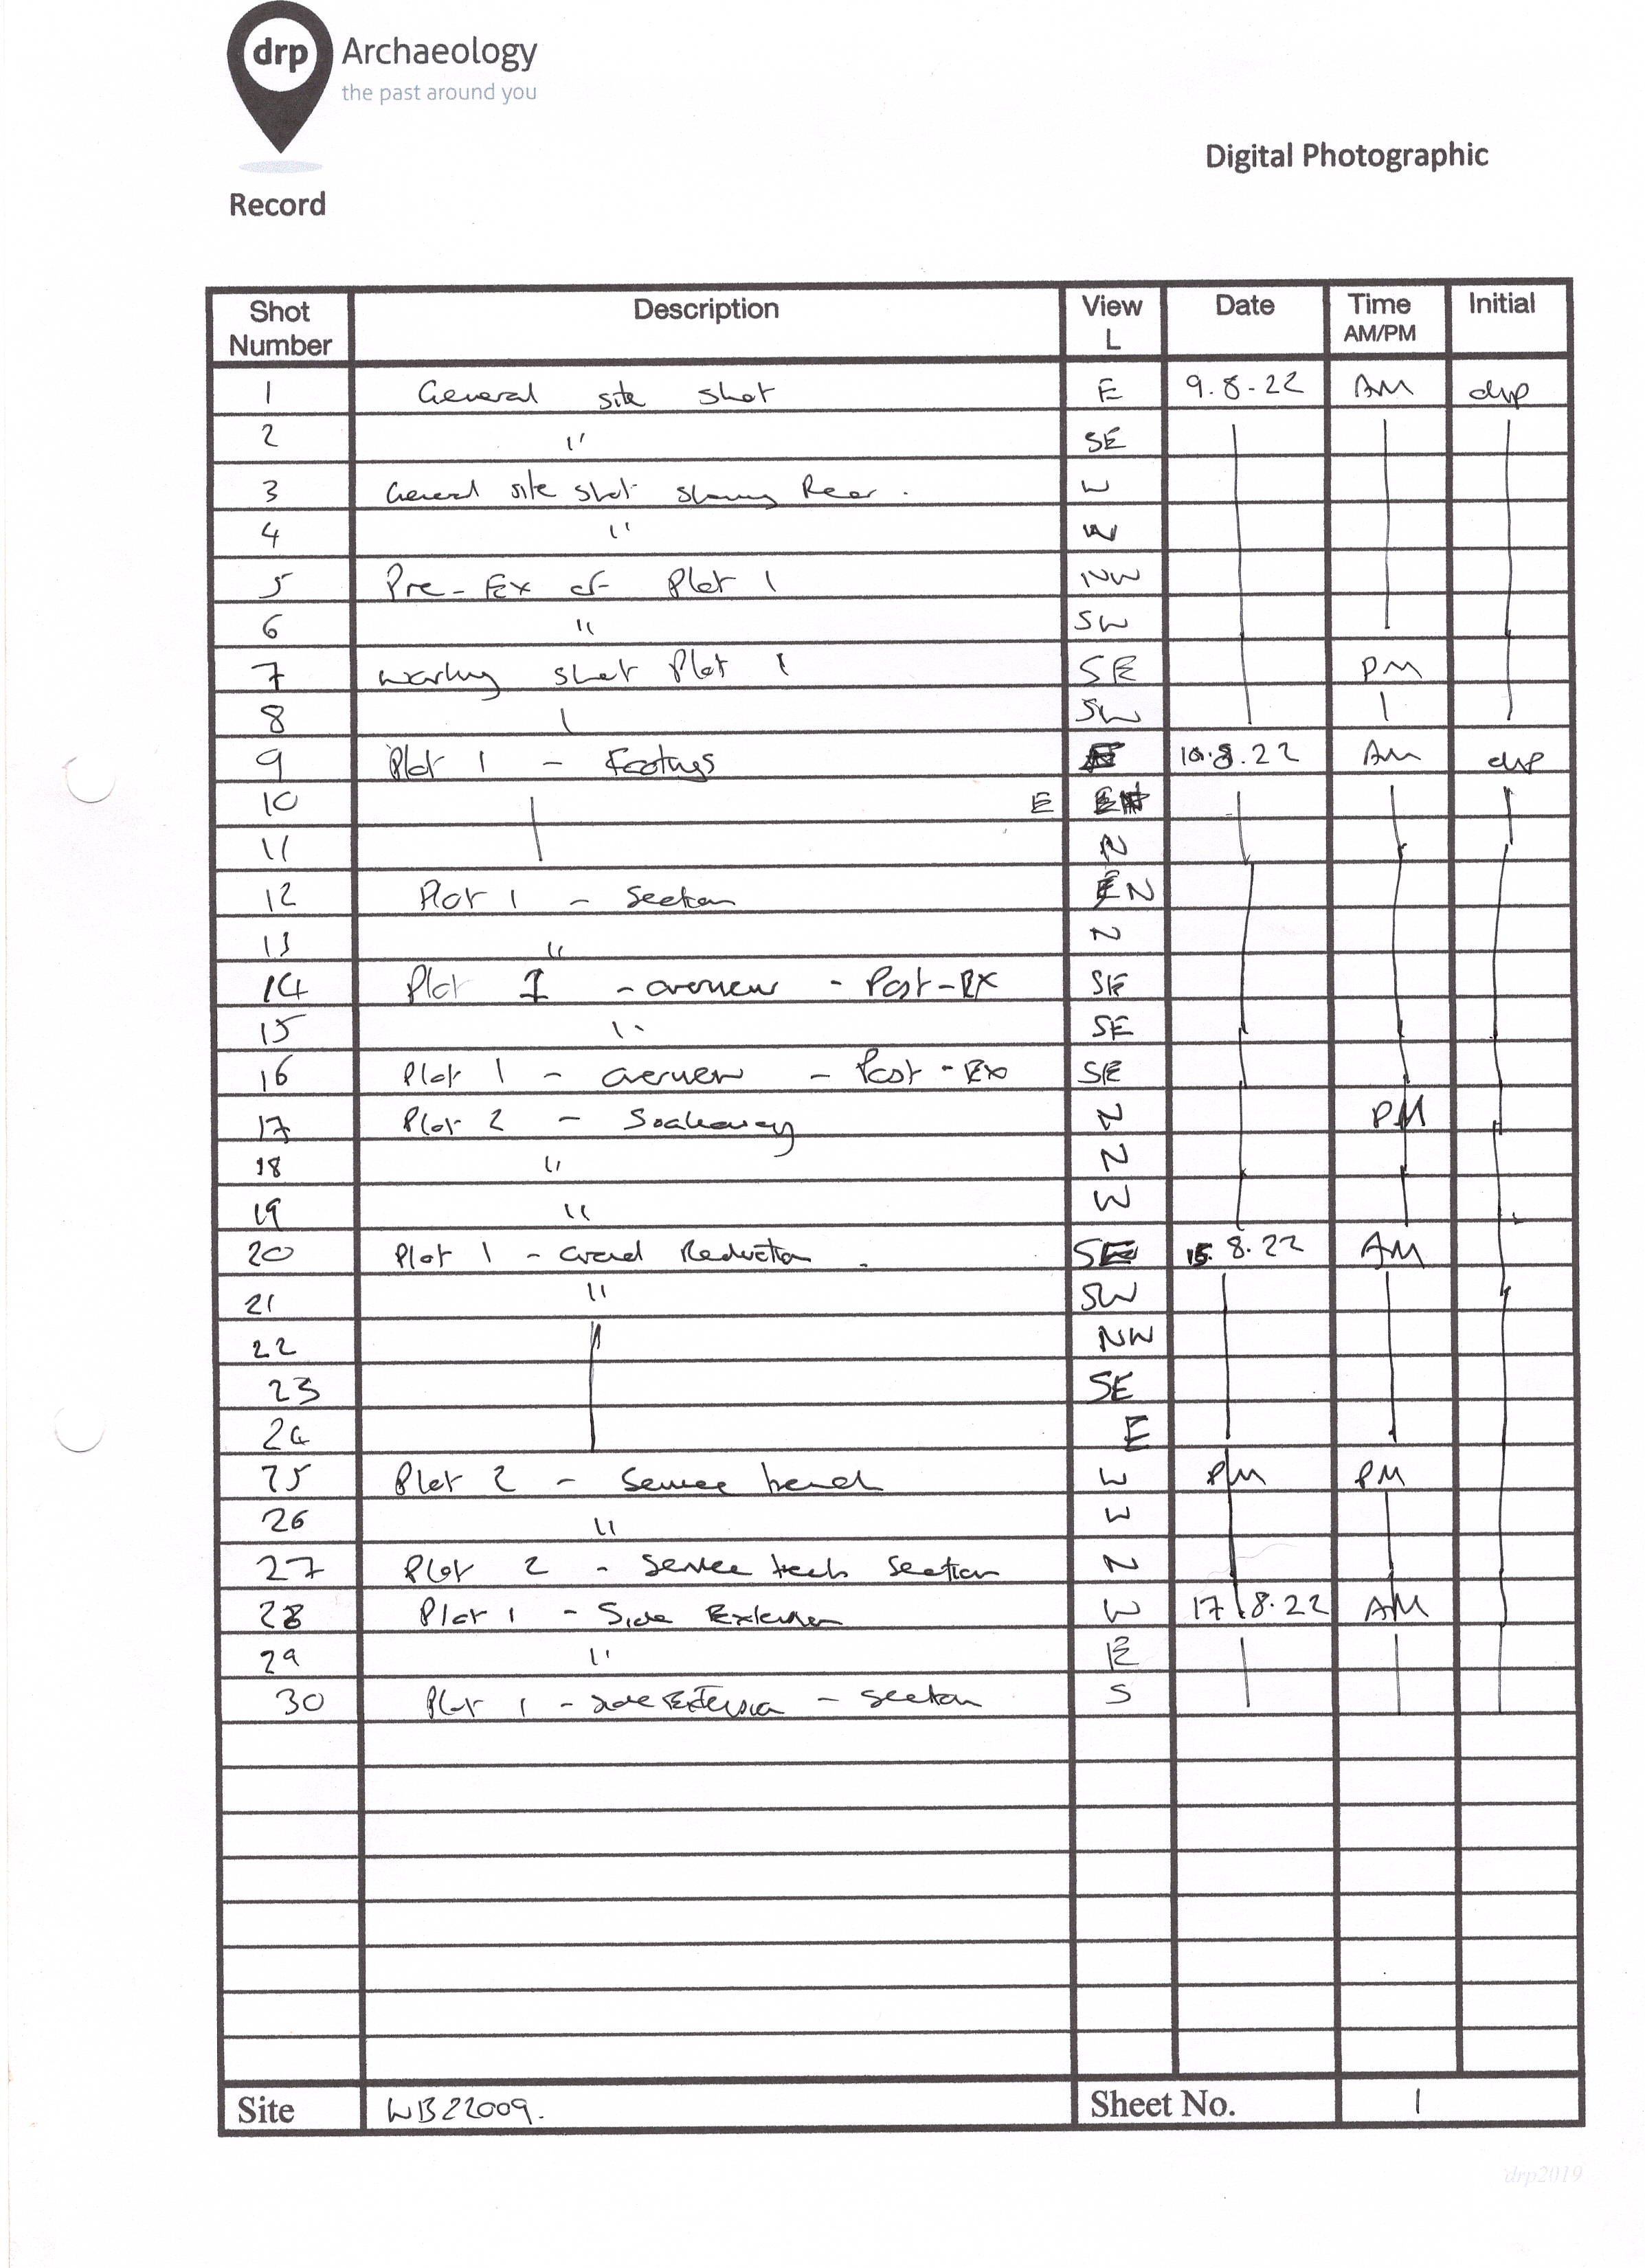 drp Archaeology
the past around you
Digital Photographic
Record
Shot Number Description View L Date Time AM/PM Initial
1 General site shot E 9.8.22 AM drp
2 " SE
3 General site shot showing Rear. W
4 " W
5 Pre-Ex of Plot 1 NW
6 " SW
7 working shot Plot 1 SE PM
8 SW
9 Plot 1 - Footings 10.8.22 AM drp
10 E
11 N
12 Plot 1 - Section N
13 " N
14 Plot 1 - overview - Post-EX SE
15 " SE
16 Plot 1 - overview - Post-Ex SE
17 Plot 2 - Soakaway N PM
18 " N
19 " W
20 Plot 1 - Ground Reduction. SE 15.8.22 AM
21 " SW
22 NW
23 SE
24 E
25 Plot 2 - Service trench W PM PM
26 " W
27 Plot 2 - Service trench Section N
28 Plot 1 - Side Extension W 17.8.22 AM
29 " E
30 Plot 1 - Side Extension - Section S
Site WB22009. Sheet No. 1
drp2019